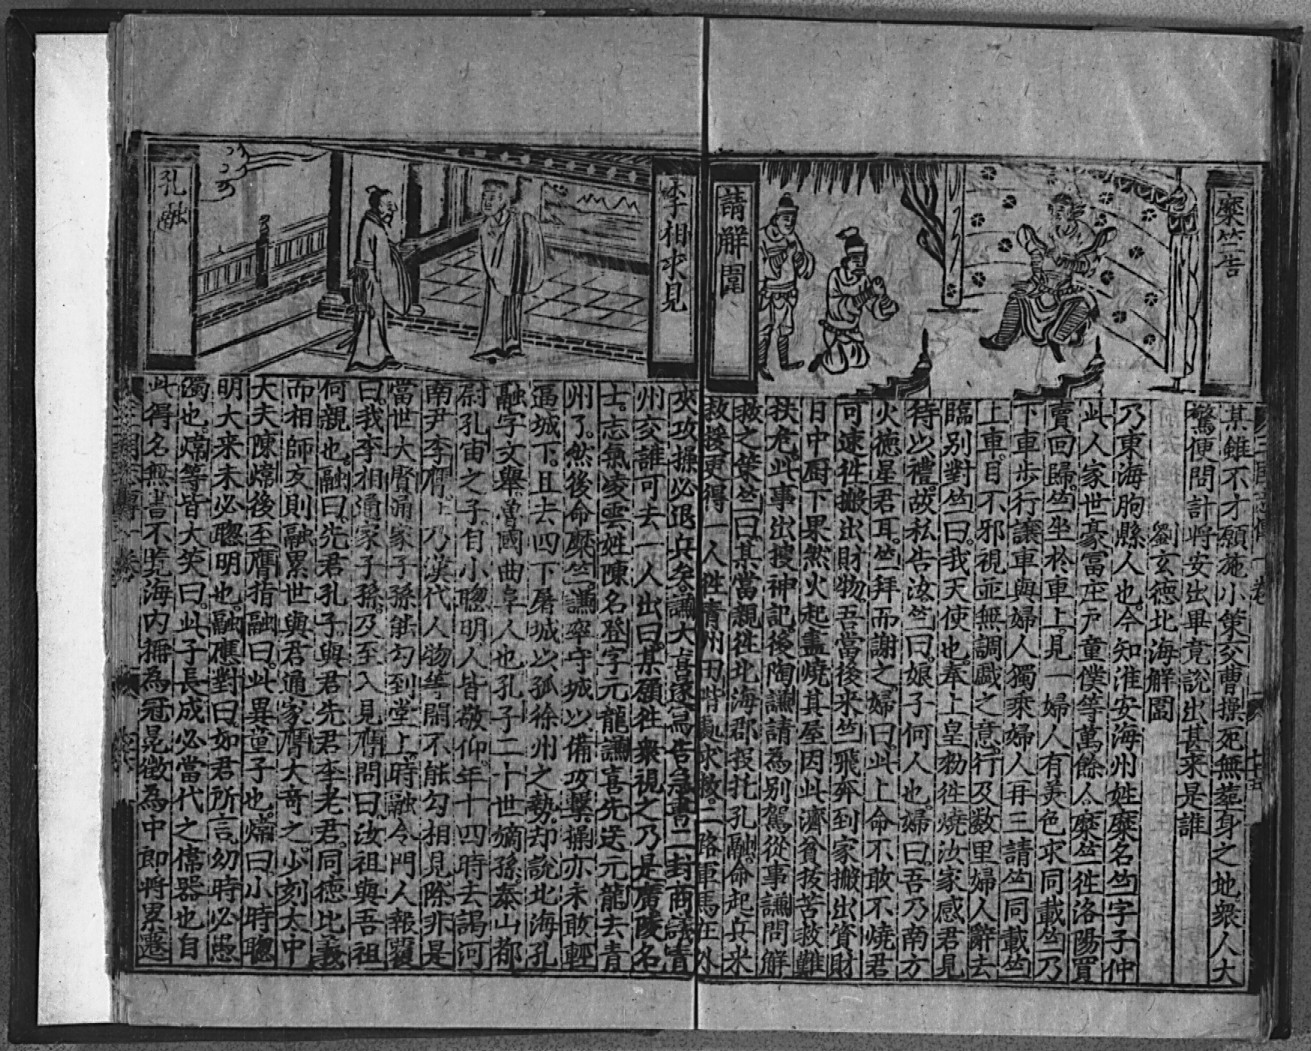 糜竺告
請解圍
某雖不才願施小策交曹操死無塟身之地衆人大
驚便問計將安出畢竟說出甚來是誰
劉玄德北海解圍
乃東海朐縣人也今知淮安海州姓糜名竺字子仲
此人家世豪富庄戶童僕等萬餘人糜竺往洛陽買
賣回歸竺坐於車上見一婦人有美色求同載竺乃
下車步行讓車與婦人獨乘婦人再三請竺同載竺
上車目不邪視並無調戲之意行及数里婦人辭去
臨别對竺曰我天使也奉上皇勑徃燒汝家感君見
待以禮故私告汝竺曰娘子何人也婦曰吾乃南方
火德星君耳竺拜而謝之婦曰此上命不敢不燒君
可速徃搬出財物吾當後来竺飛奔到家搬出資財
日中厨下果然火起盡燒其屋因此濟貧拔苦救難
扶危此事出搜神記後陶謙請為别駕從事謙問解
救之策竺曰某當親徃北海郡投托孔融命起兵来
救援更得一人徃青州田楷處求救二路軍馬在外
李相求見
孔融
夾攻操必退兵矣謙大喜遂寫告急書二封商議青
州交誰可去一人出曰某願徃衆視之乃是廣陵名
士志氣凌雲姓陳名登字元龍謙喜先送元龍去青
州了然後命糜竺謙率守城以備攻擊操亦未敢輕
逼城下且去四下屠城以孤徐州之勢却說北海孔
融字文舉魯國曲阜人也孔子二十世嫡孫泰山都
尉孔宙之子自小聰明人皆敬仰年十四時去謁河
南尹李膺乃漢代人物等閒不能勾相見除非是
當世大賢通家子孫能勾到堂上時融令門人報覆
曰我李相通家子孫乃至入見膺問曰汝祖與吾祖
何親也融曰先君孔子與君先君李老君同德比義
而相師友則融累世與君通家膺大奇之少刻太中
大夫陳煒後至膺指融曰此異童子也煒曰小時聰
明大来未必聰明也融應對曰如君所言幼時必愚
濁也煒等皆大笑曰此子長成必當代之偉器也自
此得名無書不覽海内推為冠冕徵為中郎將累遷